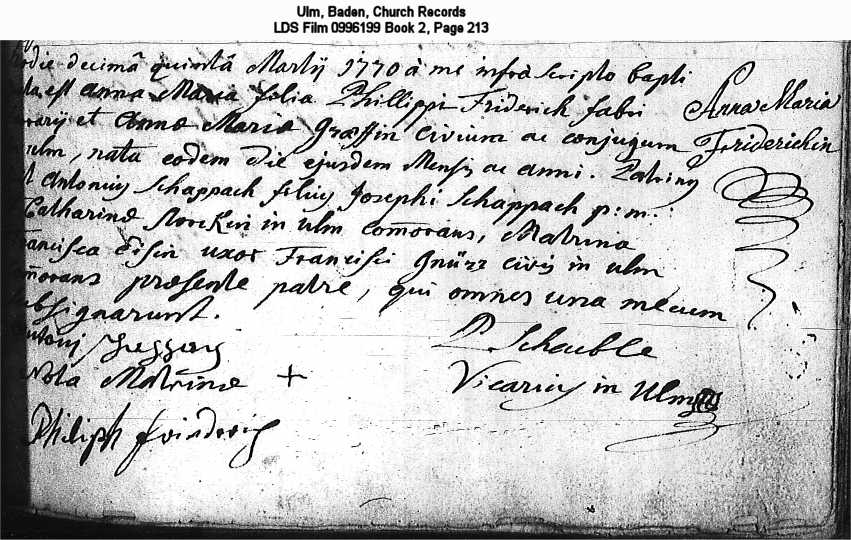 Ulm, Baden, Church Records
LDS Film 0996199 Book 2, Page 213
odie decimâ quintâ Martij 1770 â me infra scripto bapti
ta est Anna Maria filia Phillippi Friderich fabri
rarij et Annæ Mariæ Græffin civium ac conjugum
ulm, nata eodem die ejusdem Mensis ac anni. Patrinus
t Antonius Schappach filius Josephi Schappach p: m:
Catharinæ in ulm comorans, Matrina
rancisca uxor Francisci civis in ulm
morans præsente patre, qui omnes una mecum
ubsignarunt.
Anna Maria
Friderichin
ntonj
Nota Matrinæ +
Philiph Friederich
P. Scheuble
Vicarius in Ulm